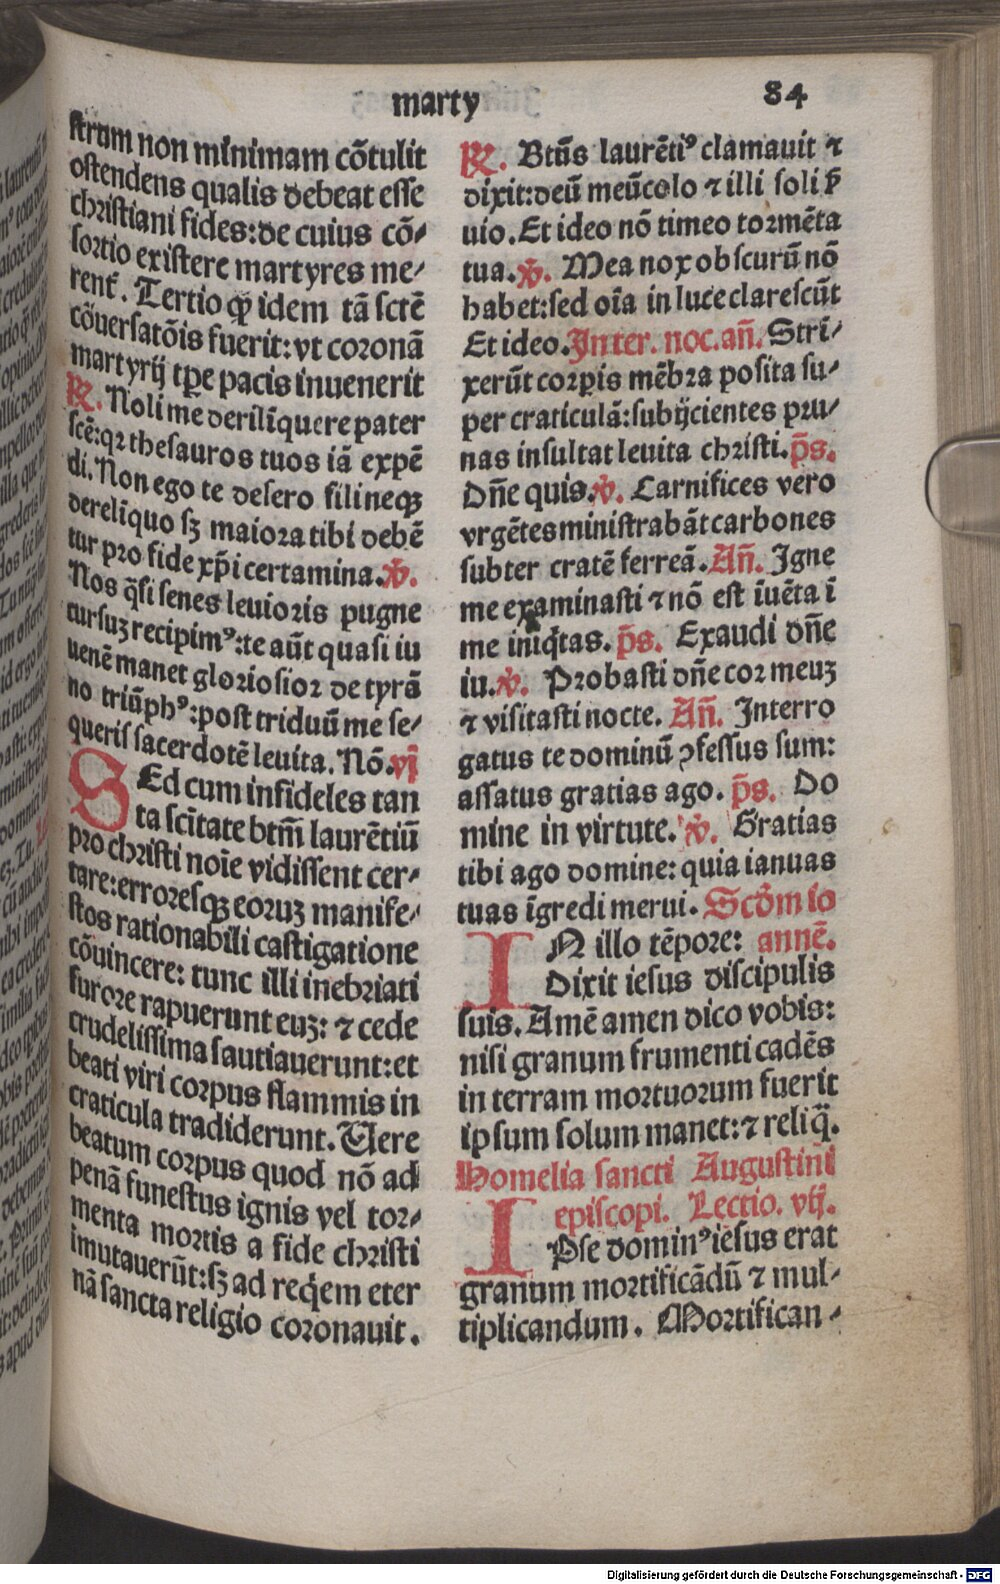 marty
84
strum non minimam cõtulit
ostendens qualis debeat esse
christiani fides:de cuius cõ⸗
sortio existere martyres me⸗
rent᷑. Tertio ꝙ idem tã sctẽ
cõuersatõis fuerit:vt coronã
martyrij tꝑe pacis inuenerit
℞. Noli me derilĩquere pater
scẽ:qꝛ thesauros tuos iã expẽ
di. Non ego te desero fili neqꝫ
derelĩquo sꝫ maiora tibi debẽ
tur pro fide xp̃i certamina.℣.
Nos q̃si senes leuioris pugne
cursuꝫ recipimꝰ:te aũt quasi iu
uenẽ manet gloriosior de tyrã
no triũphꝰ:post triduũ me se⸗
queris sacerdotẽ leuita. Nõ.vj
SEd cum infideles tan
ta scĩtate btm̃ laurẽtiũ
pro christi noĩe vidissent cer⸗
tare:erroresqꝫ eoruꝫ manife⸗
stos rationabili castigatione
cõuincere: tunc illi inebriati
furore rapuerunt euꝫ: ⁊ cede
crudelissima sautiauerunt:et
beati viri corpus flammis in
craticula tradiderunt. Uere
beatum corpus quod nõ ad
penã funestus ignis vel tor⸗
menta mortis a fide christi
imutauerũt:sꝫ ad req̃em eter
nã sancta religio coronauit.
℞. Btũs laurẽtiꝰ clamauit ⁊
dixit:deũ meũ colo ⁊ illi soli ẜ
uio. Et ideo nõ timeo tormẽta
tua.℣. Mea nox obscurũ nõ
habet:sed oĩa in luce clarescũt
Et ideo. Inter. noc. añ. Stri⸗
xerũt corꝑis mẽbra posita su⸗
per craticulã:subijcientes pru⸗
nas insultat leuita christi. p̃s.
Dñe quis.℣. Carnifices vero
vrgẽtes ministrabãt carbones
subter cratẽ ferreã. Añ. Igne
me examinasti ⁊ nõ est ĩuẽta ĩ
me iniq̃tas. p̃s. Exaudi dñe
iu.℣. Probasti dñe cor meuꝫ
⁊ visitasti nocte. Añ. Interro
gatus te dominũ ꝯfessus sum:
assatus gratias ago. p̃s. Do
mine in virtute. ℣. Gratias
tibi ago domine: quia ianuas
tuas ĩgredi merui. Scd̃m io
IN illo tẽpore: annẽ.
Dixit iesus discipulis
suis. Amẽ amen dico vobis:
nisi granum frumenti cadẽs
in terram mortuorum fuerit
ipsum solum manet:⁊ reliq̃.
Homelia sancti Augustini
episcopi. Lectio. vij.
IPse dominꝰ iẽsus erat
granum mortificãdũ ⁊ mul⸗
tiplicandum. Mortifican⸗
Digitalisierung gefördert durch die Deutsche Forschungsgemeinschaft - DFG